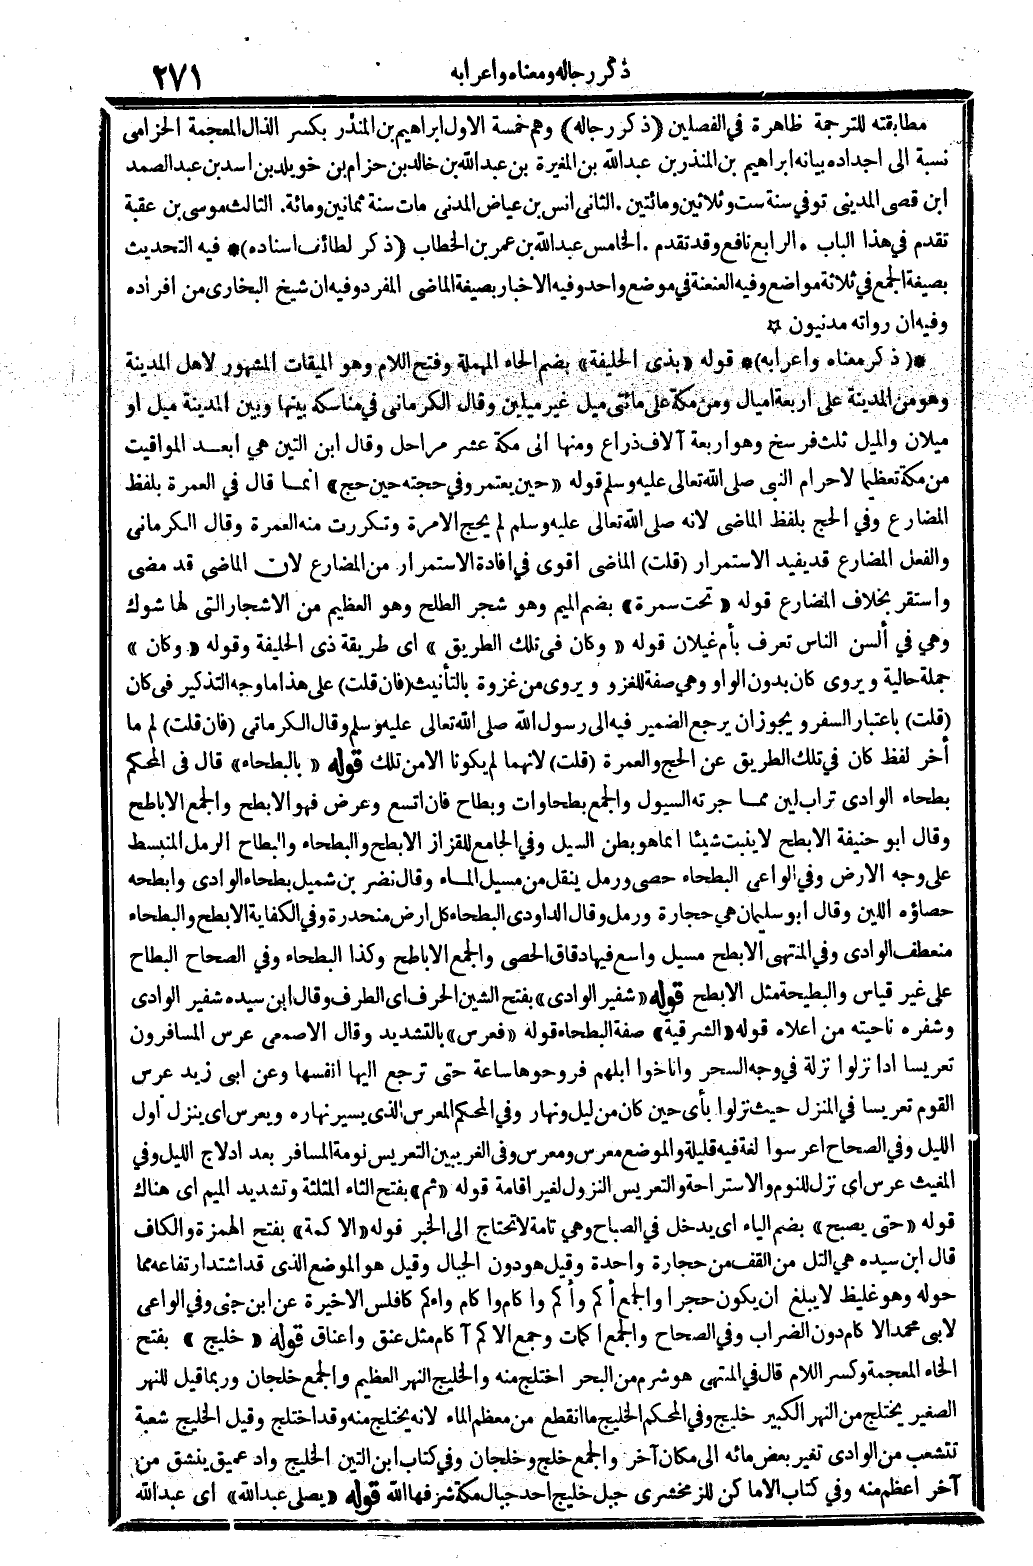 ذكر رجاله ومعناه واعرابه
٢٧١
مطابقته للترجمة ظاهرة في الفصلين (ذكر رجاله) وهم خمسة الاول ابراهيم بن المنذر بكسر الذال المعجمة الحزامى
نسبة الى اجداده بيانه ابراهيم بن المنذر بن عبدالله بن المغيرة بن عبدالله بن خالد بن حزام بن خويلد بن اسد بن عبد الصمد
ابن قصى المدينى توفي سنة ست وثلاثين ومائتين . الثانى انس بن عياض المدنى مات سنة ثمانين ومائة . الثالث موسى بن عقبة
تقدم في هذا الباب . الرابع نافع وقد تقدم . الخامس عبدالله بن عمر بن الخطاب (ذكر لطائف اسناده)* فيه التحديث
بصيغة الجمع في ثلاثة مواضع وفيه العنعنة في موضع واحد وفيه الاخبار بصيغة الماضى المفرد وفيه ان شيخ البخارى من افراده
وفيه ان رواته مدنيون ☆
*(ذكر معناه واعرابه)* قوله «بذى الحليفة» بضم الحاء المهملة وفتح اللام وهو الميقات المشهور لاهل المدينة
وهو من المدينة على اربعة اميال ومن مكة على مائتى ميل غير ميلين وقال الكرمانى في مناسكه بينها وبين المدينة ميل او
ميلان والميل ثلث فرسخ وهو اربعة آلاف ذراع ومنها الى مكة عشر مراحل وقال ابن التين هي ابعد المواقيت
من مكة تعظيما لاحرام النبى صلى الله تعالى عليه وسلم قوله «حين يعتمر وفي حجته حين حج» انما قال في العمرة بلفظ
المضارع وفي الحج بلفظ الماضى لانه صلى الله تعالى عليه وسلم لم يحج الامرة وتكررت منه العمرة وقال الكرمانى
والفعل المضارع قد يفيد الاستمرار (قلت) الماضى اقوى في افادة الاستمرار من المضارع لان الماضى قد مضى
واستقر بخلاف المضارع قوله «تحت سمرة» بضم الميم وهو شجر الطلح وهو العظيم من الاشجار التى لها شوك
وهي في ألسن الناس تعرف بأم غيلان قوله «وكان فى تلك الطريق» اى طريقة ذى الحليفة وقوله «وكان»
جملة حالية ويروى كان بدون الواو وهي صفة للغزو ويروى من غزوة بالتأنيث (فان قلت) على هذا ما وجه التذكير فى كان
(قلت) باعتبار السفر ويجوز ان يرجع الضمير فيه الى رسول الله صلى الله تعالى عليه وسلم وقال الكرمانى (فان قلت) لم ما
أخر لفظ كان في تلك الطريق عن الحج والعمرة (قلت) لانهما لم يكونا الا من تلك قوله «بالبطحاء» قال فى المحكم
بطحاء الوادى تراب لين مما جرته السيول والجمع بطحاوات وبطاح فان اتسع وعرض فهو الابطح والجمع الاباطح
وقال ابو حنيفة الابطح لا ينبت شيئا انما هو بطن السيل وفي الجامع للقزاز الابطح والبطحاء والبطاح الرمل المنبسط
على وجه الارض وفي الواعى البطحاء حصى ورمل ينقل من مسيل الماء وقال نضر بن شميل بطحاء الوادى وابطحه
حصاؤه اللين وقال ابو سليمان هي حجارة ورمل وقال الداودى البطحاء كل ارض منحدرة وفي الكفاية الابطح والبطحاء
منعطف الوادى وفي المنتهى الابطح مسيل واسع فيها دقاق الحصى والجمع الاباطح وكذا البطحاء وفي الصحاح البطاح
على غير قياس والبطيحة مثل الابطح قوله «شفير الوادى» بفتح الشين الحرف اى الطرف وقال ابن سيده شفير الوادى
وشفره ناحيته من اعلاه قوله «الشرقية» صفة البطحاء قوله «فعرس» بالتشديد وقال الاصمعى عرس المسافرون
تعريسا اذا نزلوا نزلة في وجه السحر واناخوا ابلهم فروحوها ساعة حتى ترجع اليها انفسها وعن ابى زيد عرس
القوم تعريسا في المنزل حيث نزلوا بأى حين كان من ليل ونهار وفي المحكم المعرس الذى يسير نهاره ويعرس اى ينزل اول
الليل وفي الصحاح اعرسوا لغة فيه قليلة والموضع معرس ومعرس وفى الغريبين التعريس نومة المسافر بعد ادلاج الليل وفي
المغيث عرس اى نزل للنوم والاستراحة والتعريس النزول لغير اقامة قوله «ثم» بفتح الثاء المثلثة وتشديد الميم اى هناك
قوله «حتى يصبح» بضم الياء اى يدخل في الصباح وهي تامة لا تحتاج الى الخبر قوله «الاكمة» بفتح الهمزة والكاف
قال ابن سيده هي التل من القف من حجارة واحدة وقيل هو دون الجبال وقيل هو الموضع الذى قد اشتد ارتفاعه مما
حوله وهو غليظ لا يبلغ ان يكون حجرا والجمع أكم وأكم واكام وا كام واءكم كافلس الاخيرة عن ابن جنى وفي الواعى
لابى محمد الاكام دون الضراب وفي الصحاح والجمع اكمات وجمع الاكم آكام مثل عنق واعناق قوله «خليج» بفتح
الخاء المعجمة وكسر اللام قال في المنتهى هو شرم من البحر اختلج منه والخليج النهر العظيم والجمع خلجان وربما قيل للنهر
الصغير يختلج من النهر الكبير خليج وفي المحكم الخليج ما انقطع من معظم الماء لانه يختلج منه وقد اختلج وقيل الخليج شعبة
تتشعب من الوادى تغير بعض مائه الى مكان آخر والجمع خلج وخلجان وفي كتاب ابن التين الخليج واد عميق ينشق من
آخر اعظم منه وفي كتاب الاماكن للزمخشرى جبل خليج احد جبال مكة شرفها الله قوله «يصلى عبدالله» اى عبدالله